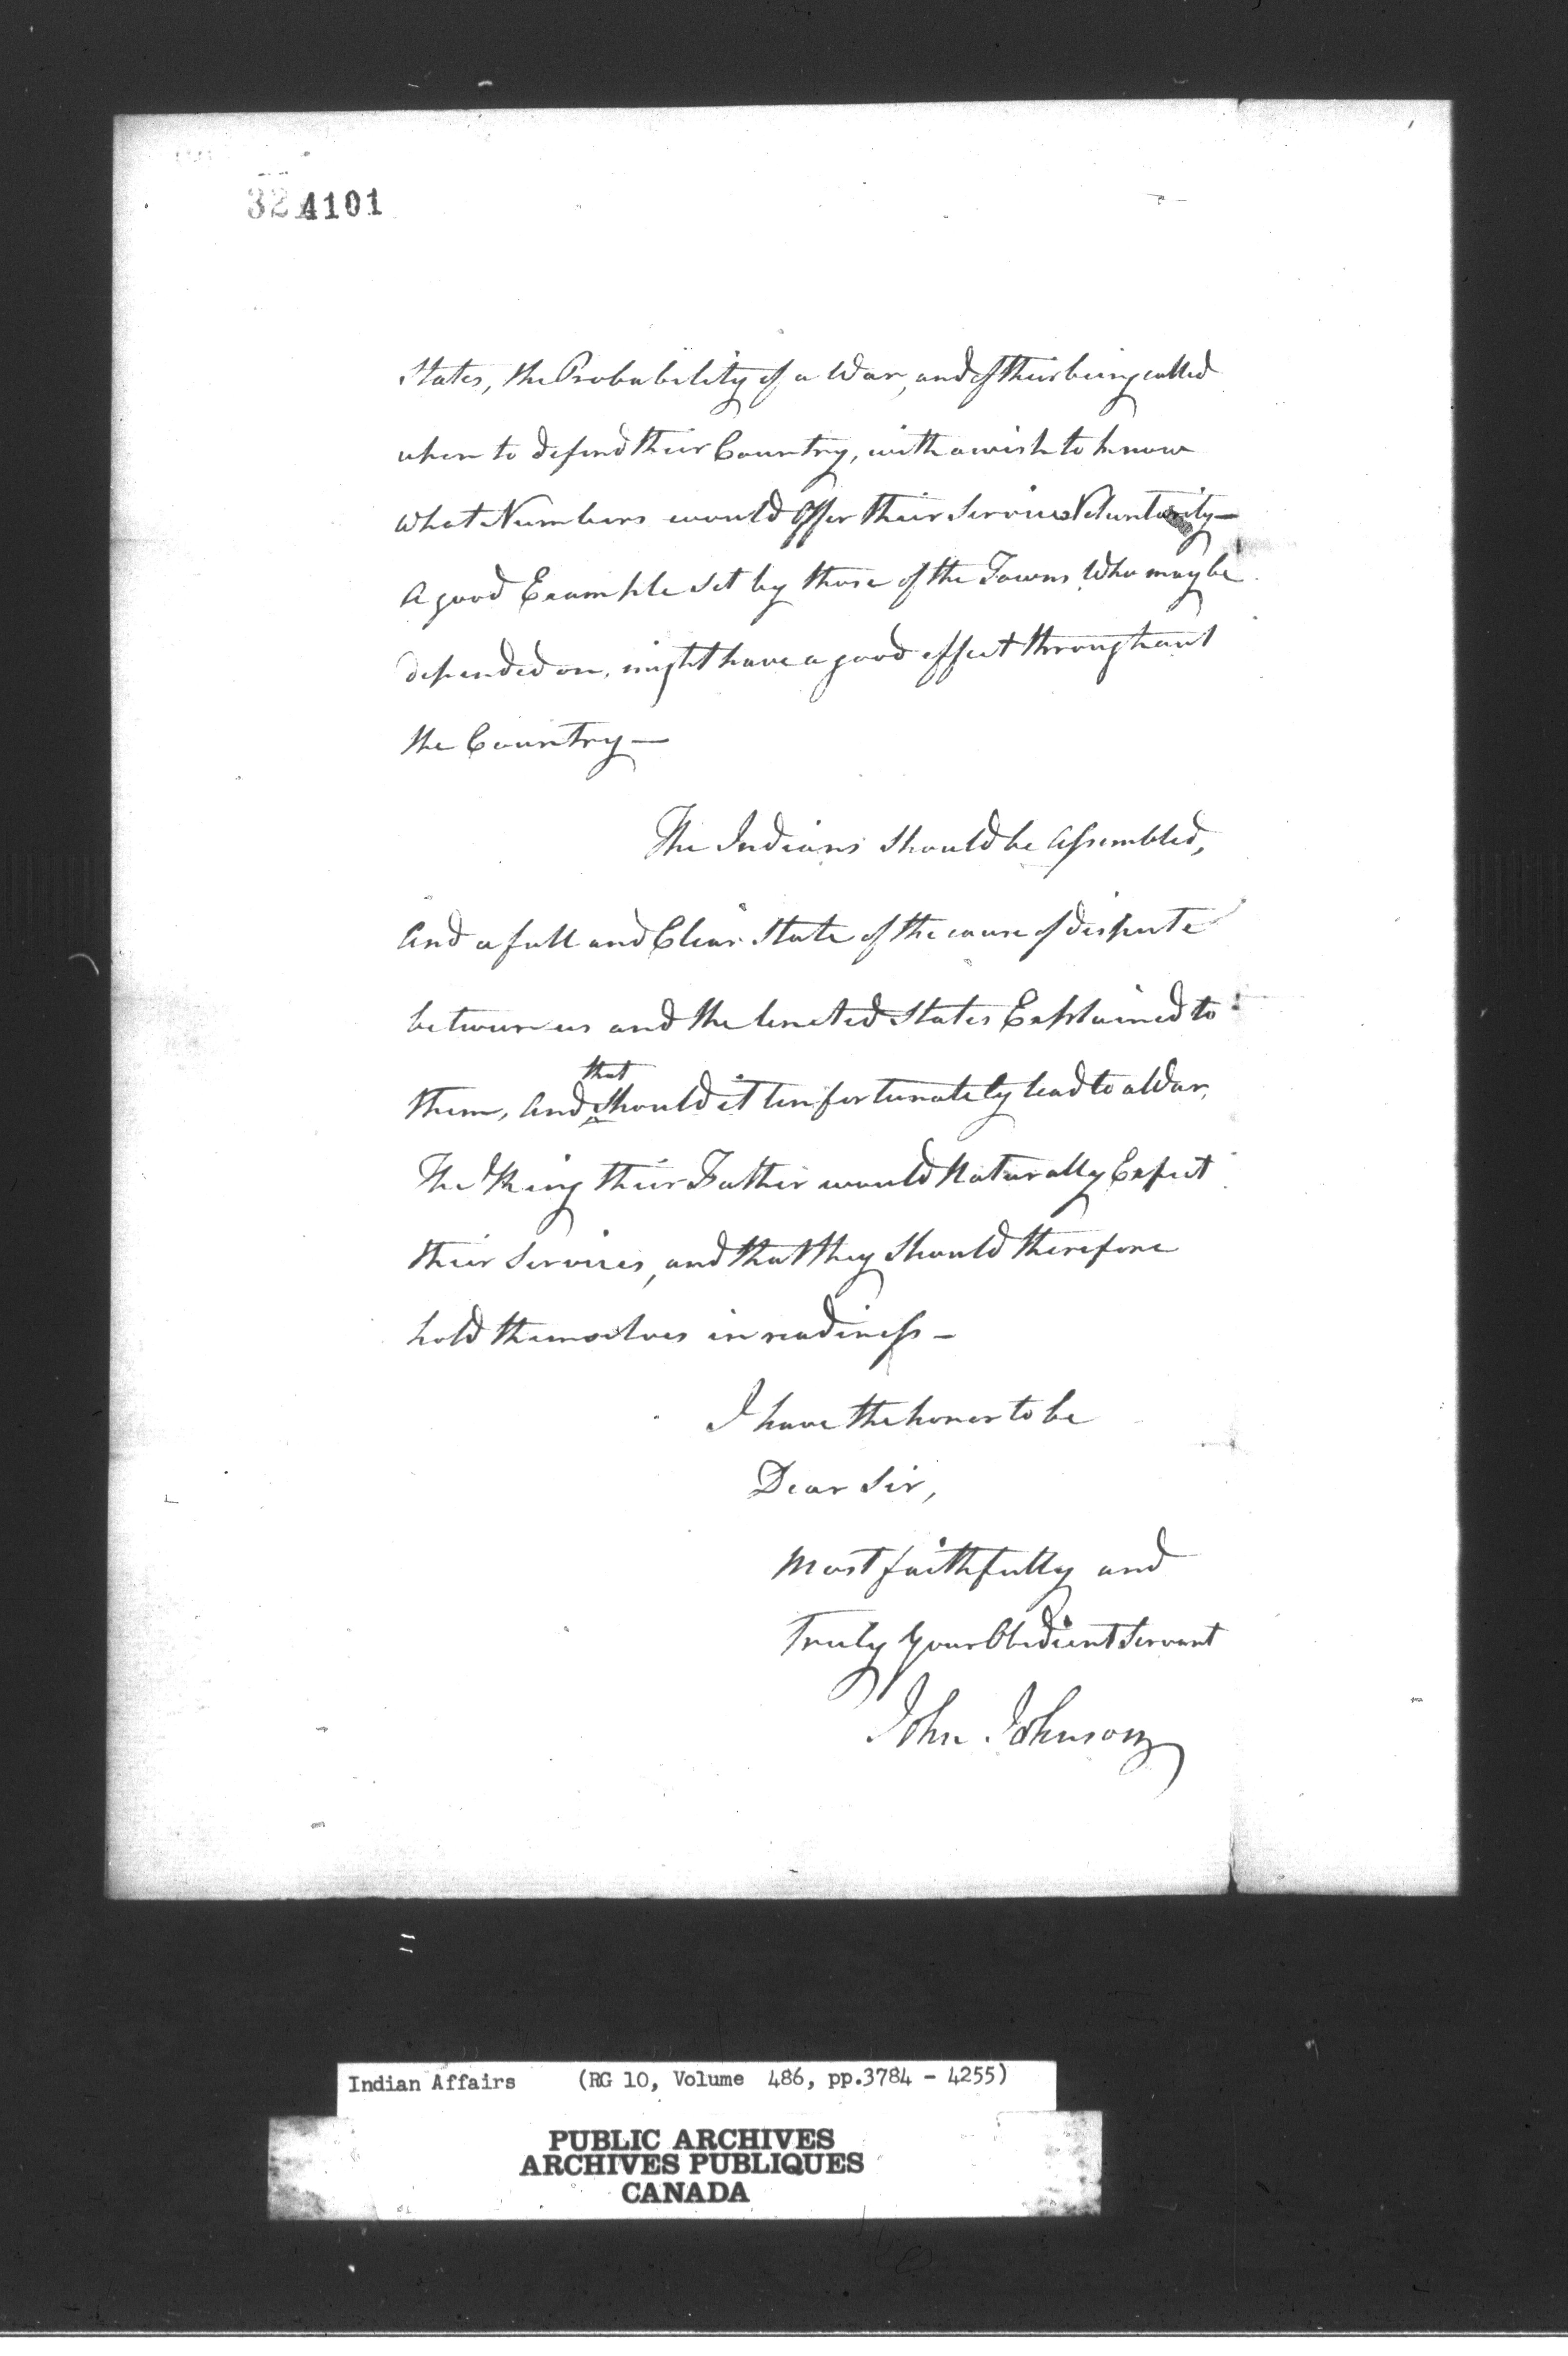 324101
States, the Probability of a War, and of their being called
upon to defend their Country, with a wish to know
what Numbers would Offer their Services Voluntarily —
A good Example set by those of the Towns Who may be
depended on, might have a good effect throughout
the Country —
The Indians should be Assembled,
And a full and Clear State of the cause of dispute
between us and the United States Explained to
that
them, And should it Unfortunately lead to a War,
The King their Father would Naturally Expect
their Services, and that they Should therefore
hold themselves in readiness —
I have the honor to be
Dear Sir,
Most faithfully and
Truly Your Obedient Servant
John Johnson
Indian Affairs (RG 10, Volume 486, pp.3784 - 4255)
PUBLIC ARCHIVES
ARCHIVES PUBLIQUES
CANADA